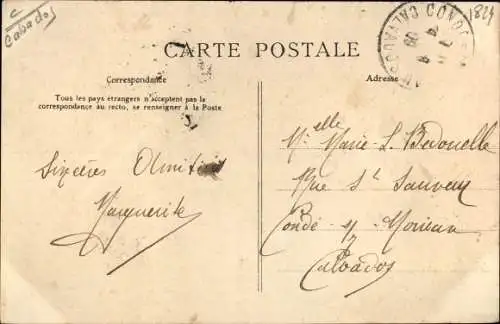 C
Calvados
1824
CARTE POSTALE
Correspondance
Tous les pays étrangers n'acceptent pas la
correspondance au recto, se renseigner à la Poste
Adresse
Sincères Amitiés
Marguerite
Melle Marie-L. Bedouelle
Rue St Sauveur
Condé s/ Noireau
Calvados